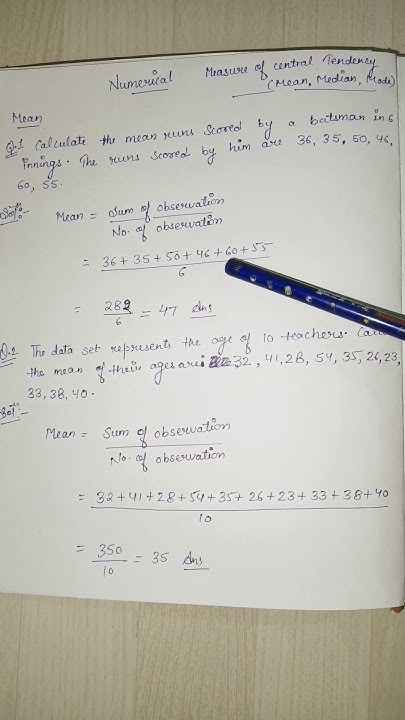 Numerical Measure of central Tendency
(Mean, Median, Mode)
Mean
Q.1 Calculate the mean runs scored by a batsman in 6
innings. The runs scored by him are 36, 35, 50, 46,
60, 55.
Solⁿ:- Mean = Sum of observation
No. of observation
= 36 + 35 + 50 + 46 + 60 + 55
6
= 282
6
= 47 Ans
Q.2 The data set represents the age of 10 teachers.
the mean of their ages are 32, 41, 28, 54, 35, 26, 23,
33, 38, 40.
Solⁿ:-
Mean = Sum of observation
No. of observation
= 32 + 41 + 28 + 54 + 35 + 26 + 23 + 33 + 38 + 40
10
= 350
10
= 35 Ans